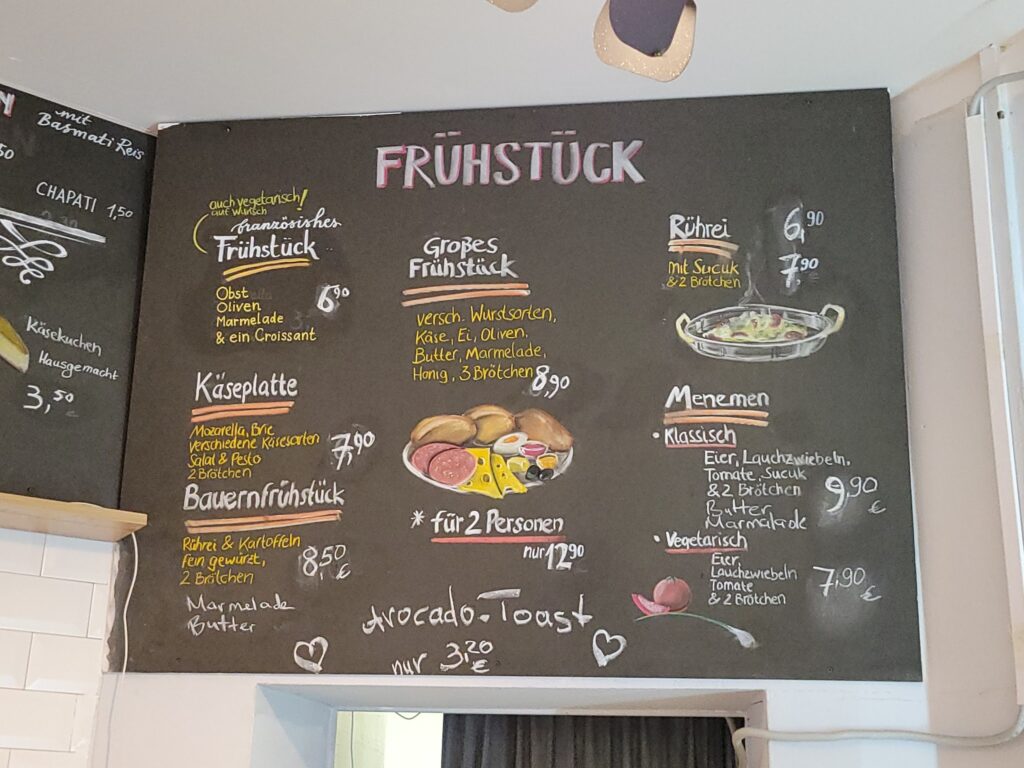 mit
Basmati Reis
50
CHAPATI 1,50
Käsekuchen
Hausgemacht
3,50
FRÜHSTÜCK
auch vegetarisch!
auf wunsch
französisches
Frühstück
Obst
Oliven
Marmelade
& ein Croissant
6,90
Käseplatte
Mozarella, Brie
verschiedene Käsesorten
Salat & Pesto
2 Brötchen
7,90
Bauernfrühstück
Rührei & Kartoffeln
fein gewürzt,
2 Brötchen
8,50
€
Marmelade
Butter
Großes
Frühstück
versch. Wurstsorten,
Käse, Ei, Oliven,
Butter, Marmelade,
Honig, 3 Brötchen
8,90
* für 2 Personen
nur 12,90
Avocado-Toast
nur 3,20
€
Rührei 6,90
mit Sucuk 7,90
& 2 Brötchen
Menemen
• Klassisch
Eier, Lauchzwiebeln,
Tomate, Sucuk
& 2 Brötchen
Butter
Marmelade
9,90
€
• Vegetarisch
Eier,
Lauchzwiebeln
Tomate
& 2 Brötchen
7,90
€